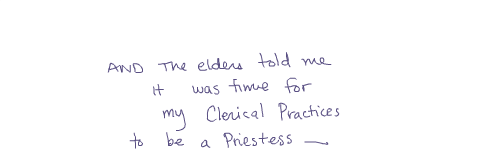 AND The elders told me
It was time for
my Clerical Practices
to be a Priestess —